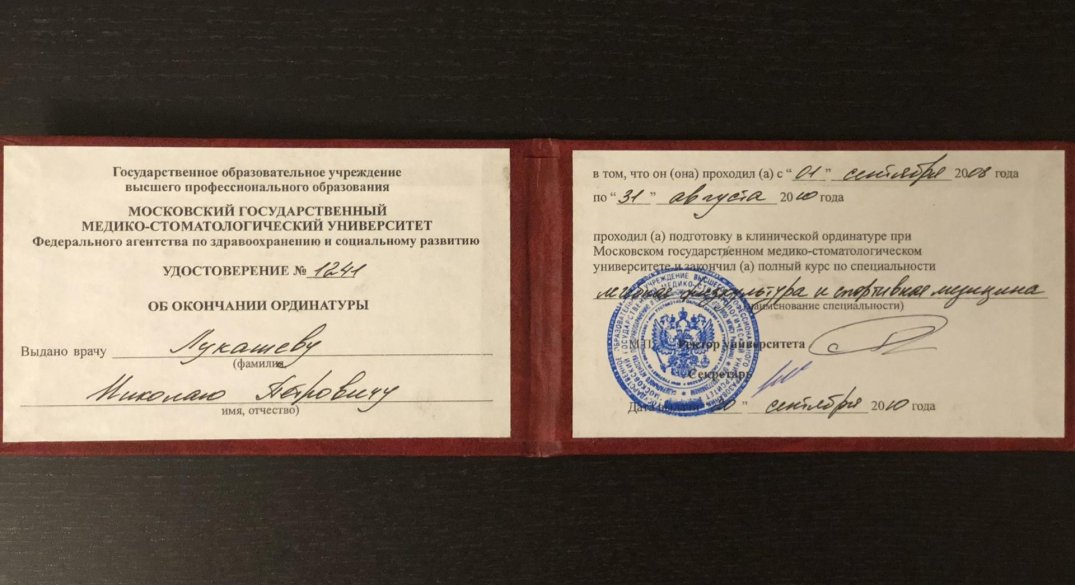 Государственное образовательное учреждение
высшего профессионального образования
МОСКОВСКИЙ ГОСУДАРСТВЕННЫЙ
МЕДИКО-СТОМАТОЛОГИЧЕСКИЙ УНИВЕРСИТЕТ
Федерального агентства по здравоохранению и социальному развитию
УДОСТОВЕРЕНИЕ № 1241
ОБ ОКОНЧАНИИ ОРДИНАТУРЫ
Выдано врачу Лукашеву
(фамилия)
Николаю Петровичу
имя, отчество)
в том, что он (она) проходил (а) с “ 01 ” сентября 2008 года
по “ 31 ” августа 2010 года
проходил (а) подготовку в клинической ординатуре при
Московском государственном медико-стоматологическом
университете и закончил (а) полный курс по специальности
лечебная физкультура и спортивная медицина
(наименование специальности)
М.П. Ректор университета
Секретарь
Дата выдачи ” сентября 2010 года